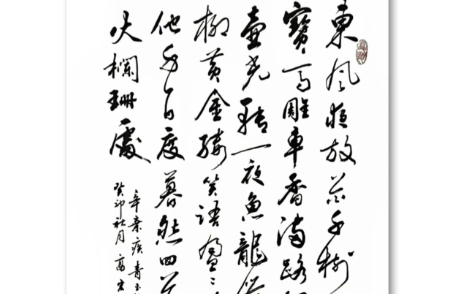 東風夜放花千樹
寶馬雕車香滿路
壺光轉一夜魚龍
柳黃金縷笑語盈
他千百度暮然回
火欄珊處
辛棄疾青玉
癸卯秋月高